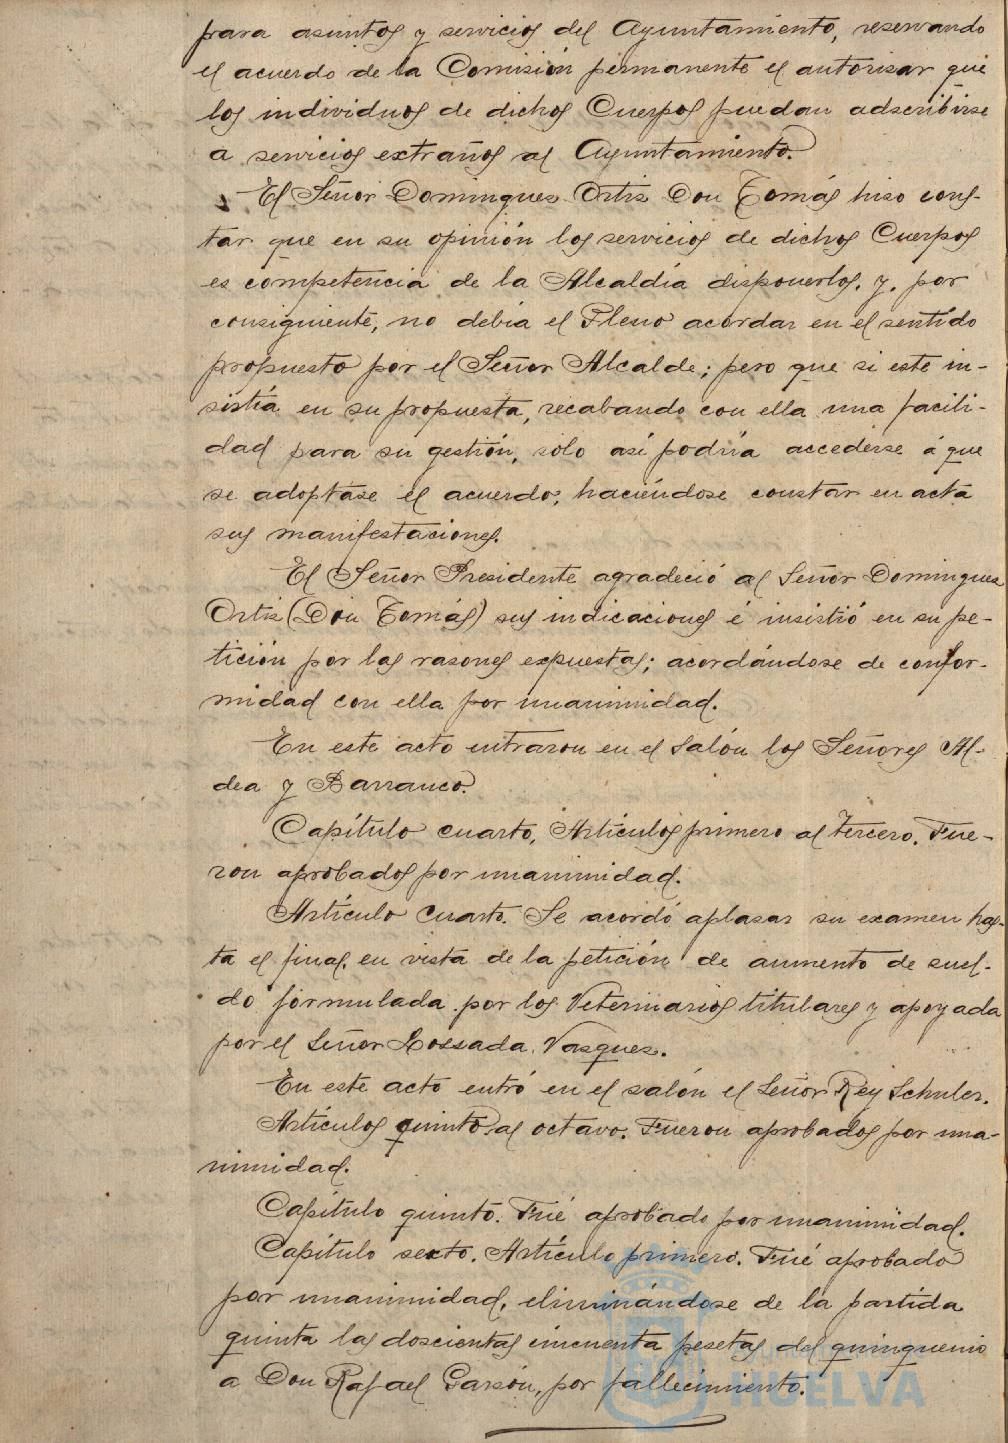 para asuntos y servicios del Ayuntamiento, reservando
el acuerdo de la Comisión permanente el autorisar que
los individuos de dichos Cuerpos puedan adscribirse
a servicios extraños al Ayuntamiento.
El Señor Domingues Ortis Don Tomás hiso cons-
tar que en su opinión los servicios de dichos Cuerpos
es competencia de la Alcaldía disponerlos, y, por
consiguiente, no debía el Pleno acordar en el sentido
propuesto por el Señor Alcalde; pero que si este in-
sistía en su propuesta, recabando con ella una facili-
dad para su gestión, sólo así podría accederse á que
se adoptase el acuerdo, haciéndose constar en acta
sus manifestaciones.
El Señor Presidente agradeció al Señor Domingues
Ortis (Don Tomás) sus indicaciones é insistió en su pe-
tición por las rasones expuestas; acordándose de confor-
midad con ella por unanimidad.
En este acto entraron en el salón los Señores Al-
dea y Barranco.
Capítulo cuarto, Artículos primero al tercero. Fue-
ron aprobados por unanimidad.
Artículo cuarto. Se acordó aplasar su examen has-
ta el final, en vista de la petición de aumento de suel-
do formulada por los Veterinarios titulares y apoyada
por el Señor Lossada Vasques.
En este acto entró en el salón el Señor Rey Schuler.
Artículos quinto al octavo. Fueron aprobados por una-
nimidad.
Capítulo quinto. Fué aprobado por unanimidad.
Capítulo sexto. Artículo primero. Fué aprobado
por unanimidad, eliminándose de la partida
quinta las doscientas cincuenta pesetas del quinquenio
a Don Rafael Garsón, por fallecimiento.
HUELVA